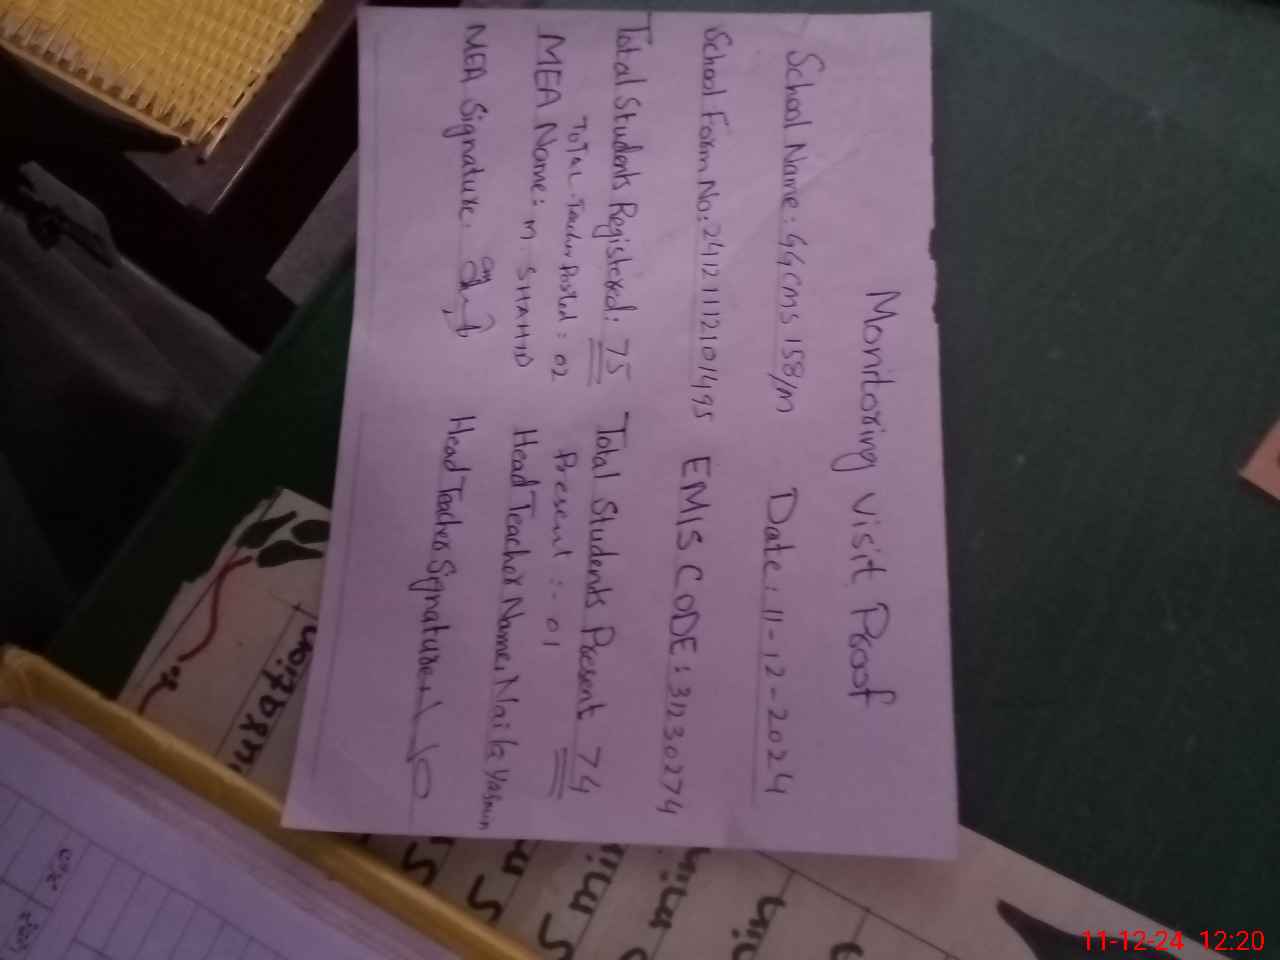 Monitoring visit Proof
School Name: GGCMS 158/M Date: 11-12-2024
School Form No: 24121112101495 EMIS CODE: 31230274
Total Students Registered: 75 Total Students Present 74
TOTAL Teacher Posted: 02 Present :- 01
MEA Name: M. SHAHID Head Teacher Name: Naila Yasmin
MEA Signature. Head Teacher Signature.
11-12-24 12:20